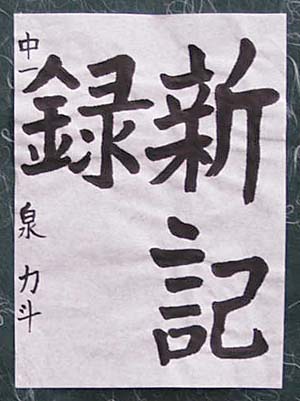 新記
録
中一 泉 力斗